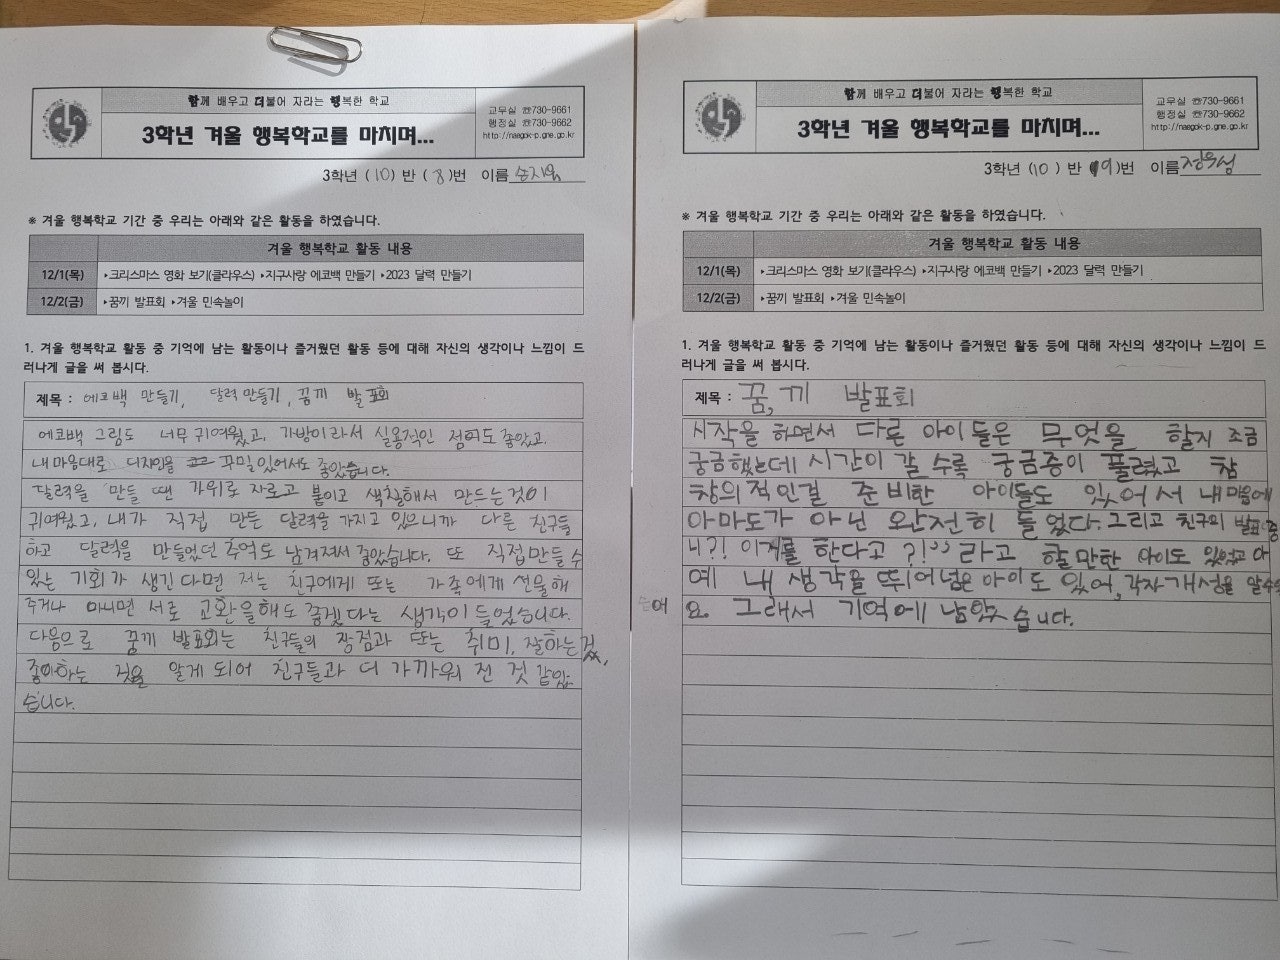 함께 배우고 더불어 자라는 행복한 학교
3학년 겨울 행복학교를 마치며...
교무실 ☏730-9661
행정실 ☏730-9662
http://naegok-p.gne.go.kr
3학년 (10) 반 (8)번 이름 손지원
※ 겨울 행복학교 기간 중 우리는 아래와 같은 활동을 하였습니다.
겨울 행복학교 활동 내용
12/1(목) ▸크리스마스 영화 보기(클라우스) ▸지구사랑 에코백 만들기 ▸2023 달력 만들기
12/2(금) ▸꿈끼 발표회 ▸겨울 민속놀이
1. 겨울 행복학교 활동 중 기억에 남는 활동이나 즐거웠던 활동 등에 대해 자신의 생각이나 느낌이 드
러나게 글을 써 봅시다.
제목 : 에코백 만들기, 달력 만들기, 꿈끼 발표회
에코백 그림도 너무 귀여웠고, 가방이라서 실용적인 점이도 좋았고.
내 마음대로 디자인을 꾸밀 있어서도 좋았습니다.
달력을 만들 땐 가위로 자르고 붙이고 색칠해서 만드는 것이
귀여웠고, 내가 직접 만든 달력을 가지고 있으니까 다른 친구들
하고 달력을 만들었던 추억도 남겨져서 좋았습니다. 또 직접만들 수
있는 기회가 생긴다면 저는 친구에게 또는 가족에게 선물해
주거나 아니면 서로 교환을해도 좋겠다는 생각이 들었습니다.
다음으로 꿈끼 발표회는 친구들의 장점과 또는 취미, 잘하는 것,
좋아하는 것을 알게 되어 친구들과 더 가까워 진 것 같았
습니다.
함께 배우고 더불어 자라는 행복한 학교
3학년 겨울 행복학교를 마치며...
교무실 ☏730-9661
행정실 ☏730-9662
http://naegok-p.gne.go.kr
3학년 (10) 반 (19)번 이름 정우성
※ 겨울 행복학교 기간 중 우리는 아래와 같은 활동을 하였습니다.
겨울 행복학교 활동 내용
12/1(목) ▸크리스마스 영화 보기(클라우스) ▸지구사랑 에코백 만들기 ▸2023 달력 만들기
12/2(금) ▸꿈끼 발표회 ▸겨울 민속놀이
1. 겨울 행복학교 활동 중 기억에 남는 활동이나 즐거웠던 활동 등에 대해 자신의 생각이나 느낌이 드
러나게 글을 써 봅시다.
제목 : 꿈,끼 발표회
시작을 하면서 다른 아이들은 무엇을 할지 조금
궁금했는데 시간이 갈 수록 궁금증이 풀렸고 참
창의적인걸 준비한 아이들도 있어서 내 마음에
아마도가 아닌 완전히 들었다. 그리고 친구의 발표 중
니?! 이거를 한다고?!" 라고 할만한 아이도 있었고 아
예 내 생각을 뛰어넘은 아이도 있어, 각자 개성을 알수
요. 그래서 기억에 남았습니다.